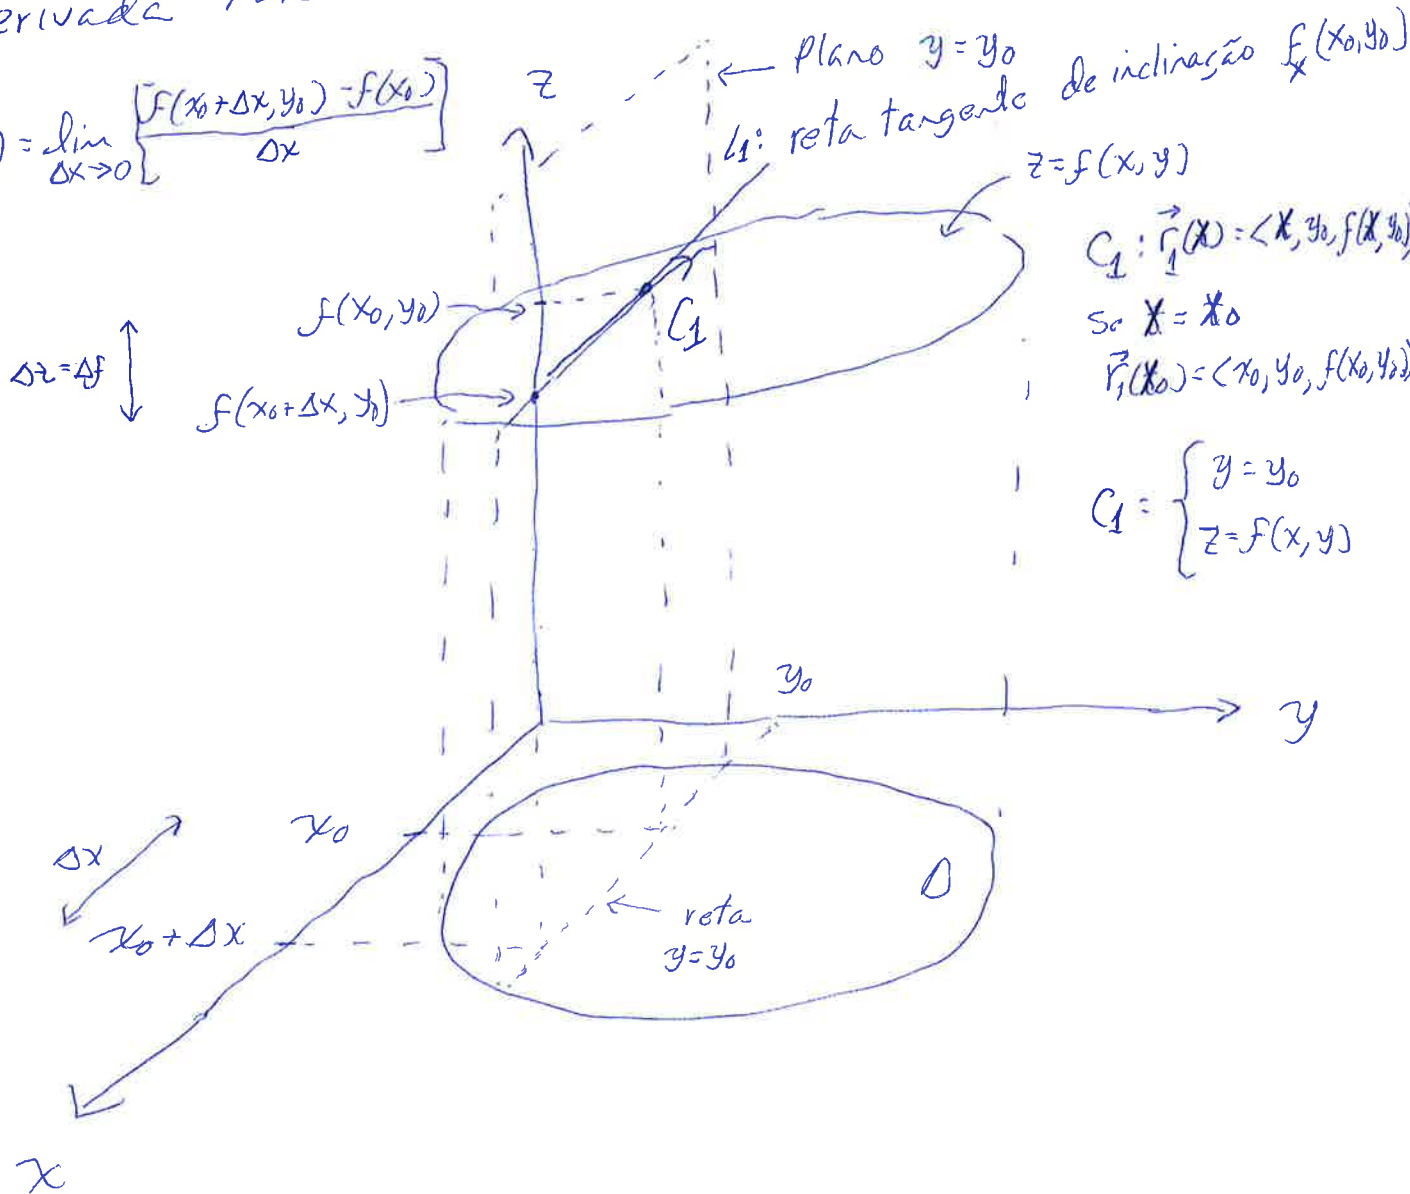 erivada
) = lim Δx→0 [f(x₀+Δx, y₀) - f(x₀)] / Δx
z
Plano y = y₀
L₁: reta tangente de inclinação fₓ(x₀, y₀)
z = f(x, y)
C₁: r⃗₁(x) = <x, y₀, f(x, y₀)
se x = x₀
r⃗₁(x₀) = <x₀, y₀, f(x₀, y₀)
f(x₀, y₀)
C₁
Δz = Δf
f(x₀+Δx, y₀)
C₁ = { y = y₀
z = f(x, y)
y₀
y
x₀
Δx
D
reta
y = y₀
x₀ + Δx
x